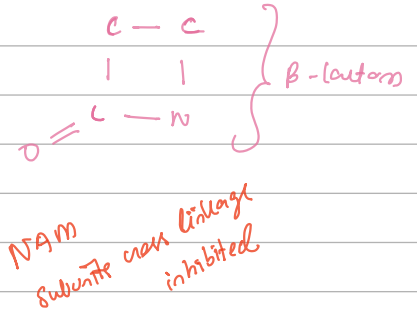 C — C
| |
C — N
O
β-lactam
NAM
subunits cross linkage
inhibited